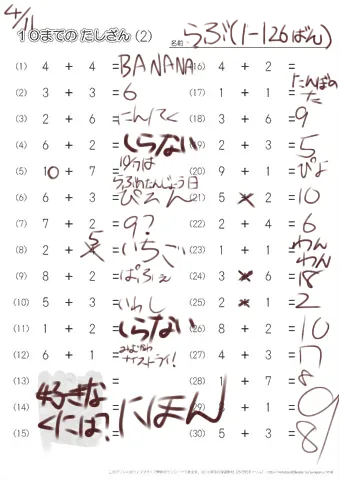 4/11
10までの たしざん (2)
名前 らぶ(1-126ばん)
(1) 4 + 4 =BANANA
(2) 3 + 3 =6
(3) 2 + 6 =にんてく
(4) 6 + 2 =しらない
(5) 10 + 7 =10/7は
らぶのたんじょう日
(6) 6 + 3 =ぴえん
(7) 7 + 2 =9?
(8) 2 + 5 =いちご
(9) 8 + 2 =ぱふぇ
(10) 5 + 3 =いわし
(11) 1 + 2 =しらない
(12) 6 + 1 =
ナイストライ!
(13)
(14)
(15)
好きな
くには?
にほん
(16) 4 + 2 =たんぼの
た
(17) 1 + 1 =
(18) 3 + 6 =9
(19) 2 + 3 =5
(20) 9 + 1 =ぴよ
(21) 5 × 2 =10
(22) 2 + 4 =6
(23) 1 + 1 =わん
わん
(24) 3 × 6 =18
(25) 2 × 1 =2
(26) 8 + 2 =10
(27) 4 + 3 =7
(28) 1 + 7 =8
(29) + 1 =9
(30) 5 + 3 =8